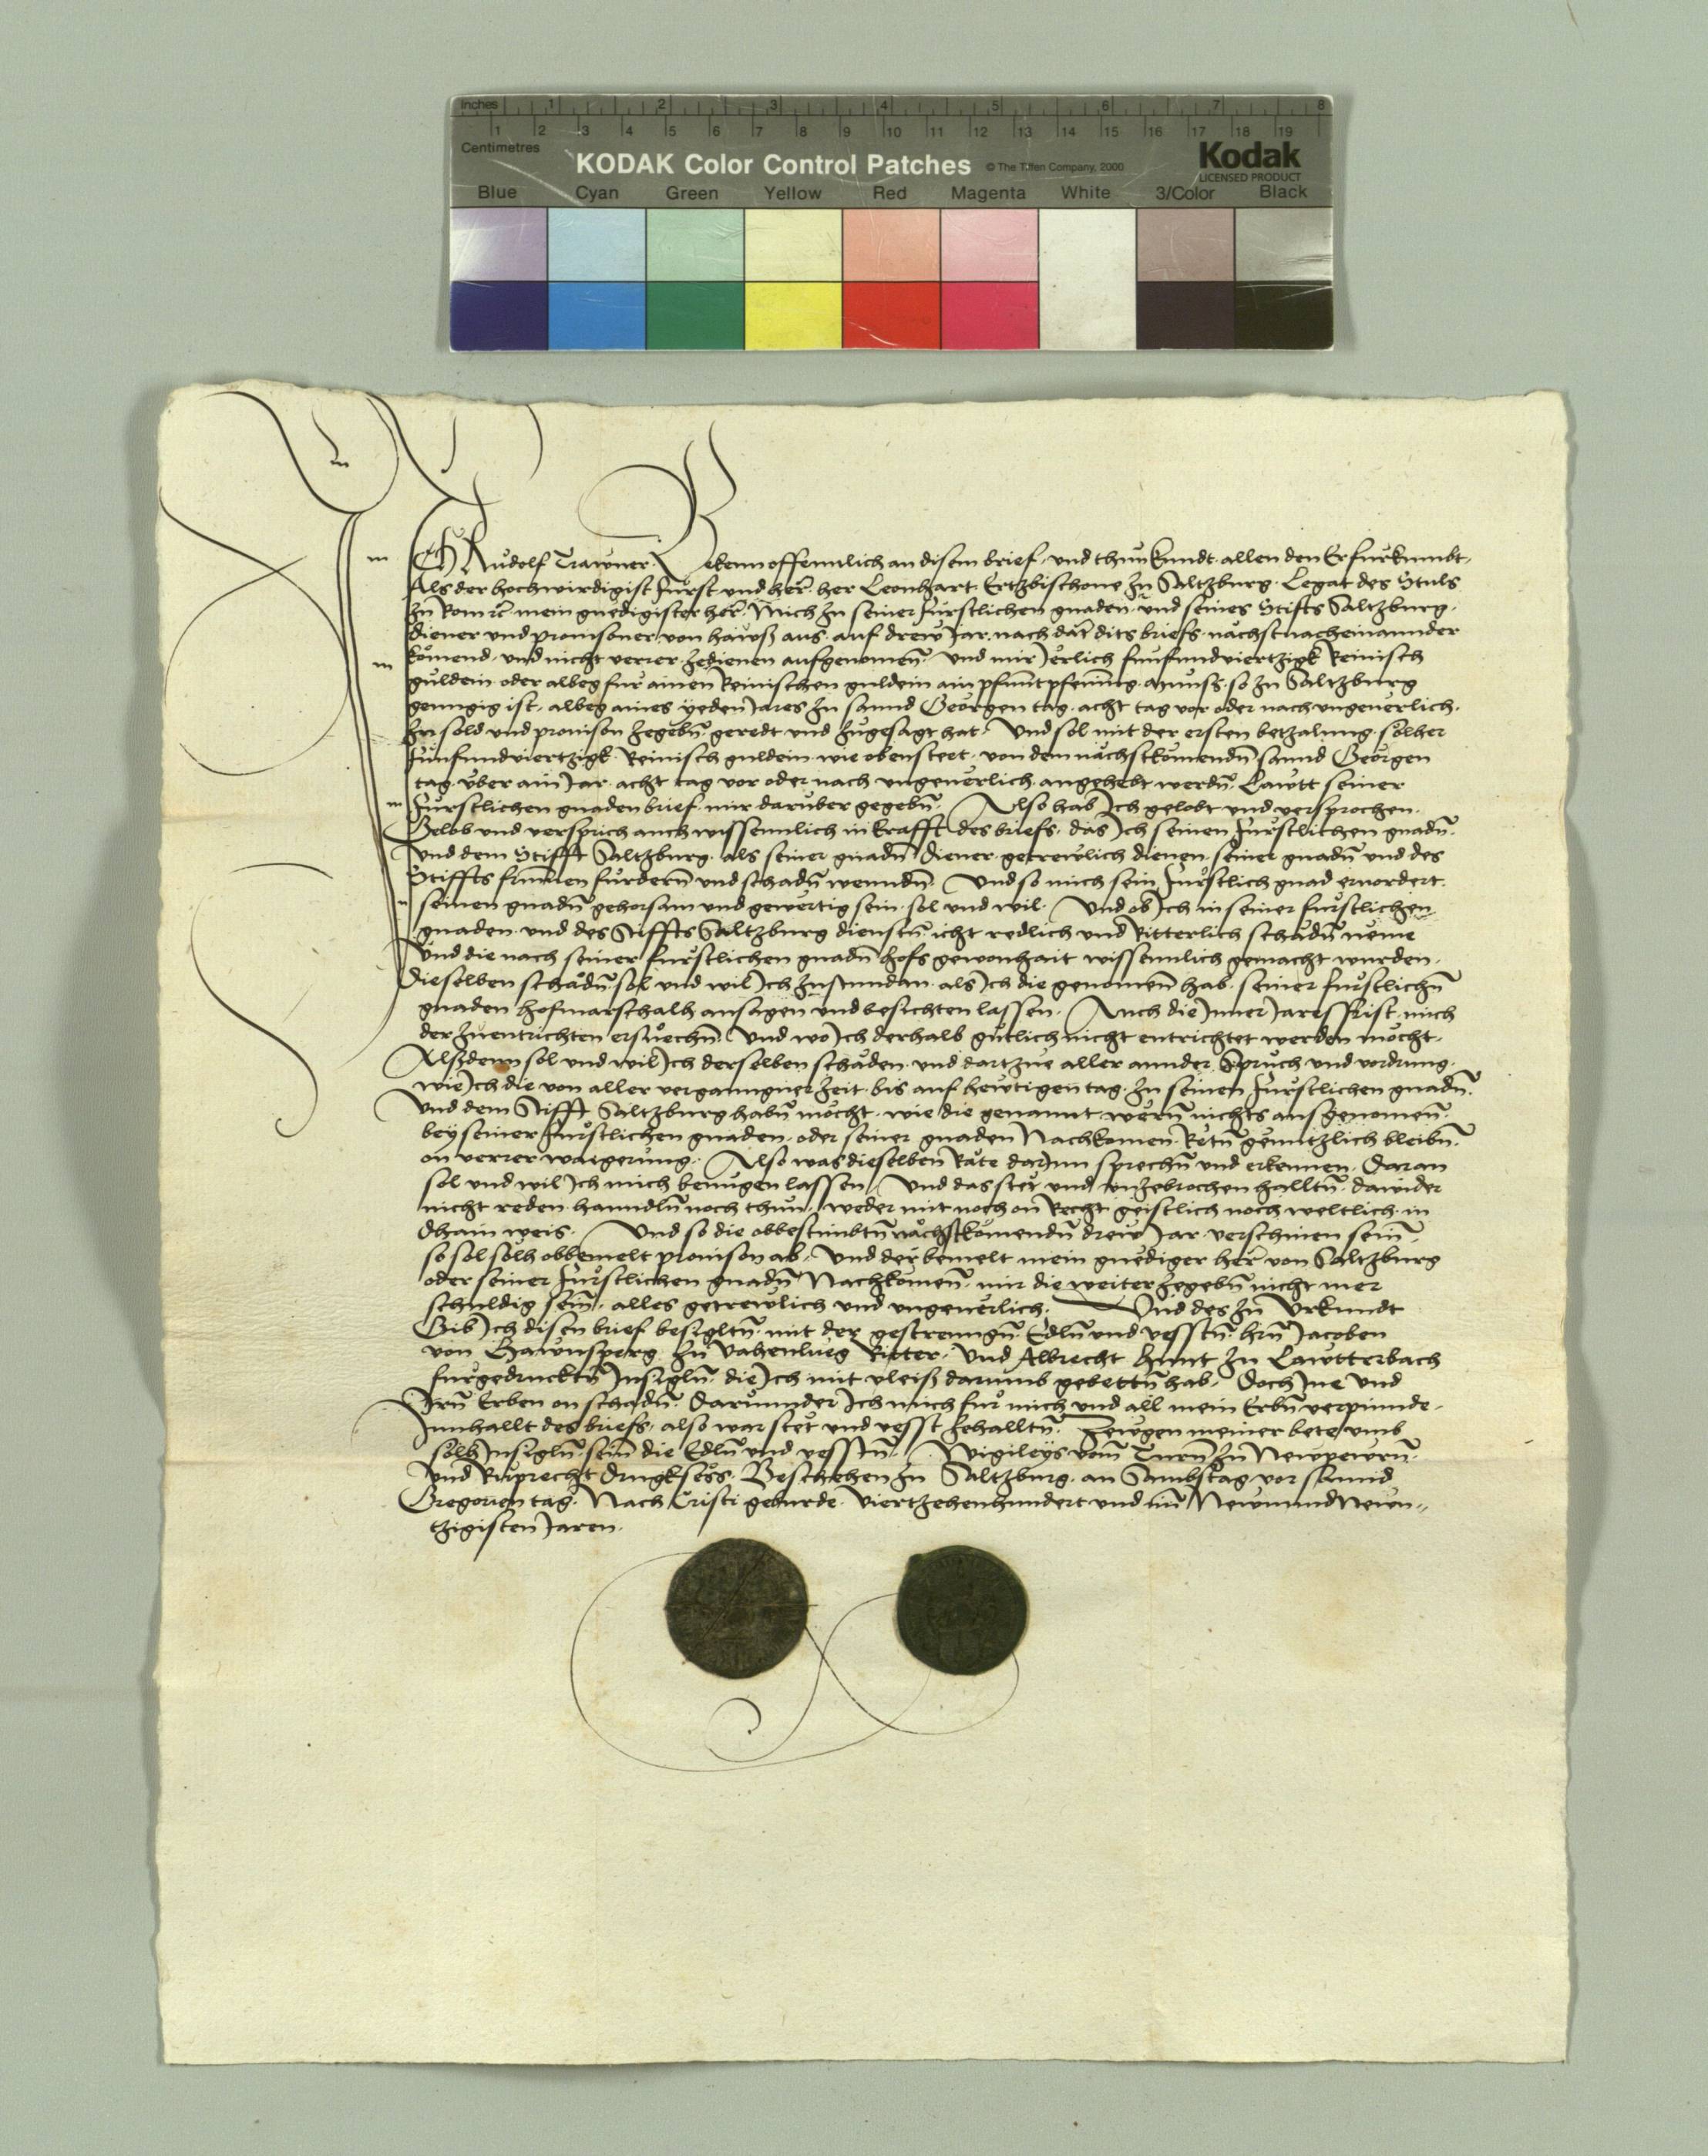 Inches 1 2 3 4 5 6 7 8
1 2 3 4 5 6 7 8 9 10 11 12 13 14 15 16 17 18 19
Centimetres
KODAK Color Control Patches © The Tiffen Company, 2000 Kodak
LICENSED PRODUCT
Blue Cyan Green Yellow Red Magenta White 3/Color Black
Ich Rudolf Trawner Bekenn offennlich an disem brief, und thun kundt allen den Er furkumbt,
Als der hochwirdigist Fürst und her̄ her Leonhart Ertzbischove zu Saltzburg Legat des Stuls
zu Rom rc̄ mein gnedigister her̄ Mich zu seiner Fürstlichen gnaden und seines Stifts Saltzburg
diener und provisoner von hawß aus auf drew Jar nach dat̄ dits briefs nachstnacheinannder
komend und nicht verrer zedienen aufgenomen̄ Und mir Jerlich funfundviertzigk Reinisch
guldein oder albeg für ainen Reinischen guldein ain pfunt pfening münss so zu Saltzburg
genngig ist, albeg aines yeden Jares zu sannd Georgen tag acht tag vor oder nach ungeuerlich
zu sold und provison zegebn̄ geredt und zugesagt hat. Und sol mit der ersten betzalung solher
Funfundviertzigk Reinisch guldein wie oben steet von dem nachstkomendn̄ sannd Georgen
tag über ain Jar acht tag vor oder nach ungeuerlich angehebt werdn̄ Lawtt seiner
Fürstlichen gnaden brief mir darüber gegebn̄ Also hab Ich gelobt und versprochen
Gelob und versprich auch wissennlich in krafft des briefs, das Ich seinen Fürstlichen gnadn̄
Und dem Stifft Saltzburg als seiner gnadn̄ Diener getrewlich dienen seiner gnadn̄ und des
Stiffts frumen fürdern̄ und schadn̄ wenndn̄ Und so mich sein Fürstlich gnad ervordert
seinen gnadn̄ gehorsam und gewertig sein sol und wil. Und ob Ich in seiner fürstlichen
gnaden und des Stiffts Saltzburg dienstn̄ icht redlich und Ritterlich schadn̄ neme
Und die nach seiner fürstlichen gnadn̄ hofs gewonhait wissennlich gemacht wurden
Dieselben schadn̄ sol und wil Ich zustundan als Ich die genomen̄ hab seiner fürstlichn̄
gnaden hofmarschalh ansagen und besichten lassen. Auch die Inner Jaresfrist mich
der zuentrichten ersuechn̄ Und wo Ich derhalb gütlich nicht entrichtet werden mocht
Alßdenn sol und wil Ich derselben schaden und dartzue aller annder Spruch und vordrung
wie Ich die von aller verganngner zeit bis auf hewtigen tag zu seinen Fürstlichen gnadn̄
Und dem Stifft Saltzburg habn̄ mocht wie die genannt wern̄ nichts ausgenomen̄
bey seiner Fürstlichen gnaden oder seiner gnaden Nachkomen Retn̄ genntzlich bleibn̄
on verrer waigerung. Also was dieselben Räte darInn sprechn̄ und erkennen Daran
sol und wil Ich mich benugen lassen Und das stet und unzebrochen halltn̄ dawider
nicht reden hanndln̄ noch thun, weder mit noch on Recht geistlich noch weltlich in
dhain weis. Und so die obbestimbtn̄ nachstkomendn̄ drew Jar verschinen sein̄
so sol solh obbemelt provison ab Und der bemelt mein gnediger her̄ von Saltzburg
oder seiner Fürstlichen gnadn̄ Nachkomen̄ mir die weiter zegebn̄ nicht mer
schuldig sein̄ alles getrewlich und ungeuerlich. Und des zu Urkundt
Gib Ich disen brief besigltn̄ mit der gestrenngn̄ Edln̄ und vesstn̄ hrn̄ Jacoben
von Hawnsperg zu Vahenlueg Ritter Und Albrecht Hunt zu Lawtterbach
fürgedrucktn̄ Insigln̄ die Ich mit vleiß darumb gebettn̄ hab Doch Ine und
Irn̄ Erben on schadn̄ Darunnder Ich mich für mich und all mein Erbn̄ verpinnde
Innhallt des briefs also war stet und vesst zehalltn̄ Zewgen meiner bete umb
solh Insigln̄ sein̄ die Edln̄ und vesstn̄ Wigileys vom̄ Turn̄ zu Newpewrn̄
Und Ruprecht Drugksess. Beschehen zu Saltzburg an Sambstag vor sannd
Gregorien tag Nach Cristi geburde Viertzehenhundert und im̄ Newnundnewn
tzigisten Jaren.